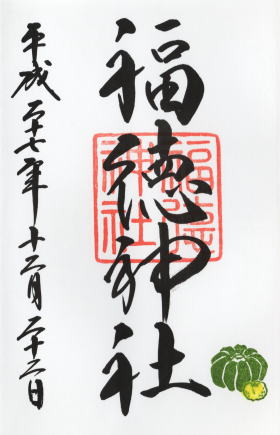 福徳神社
福徳
神社
平成二十七年十二月二十二日